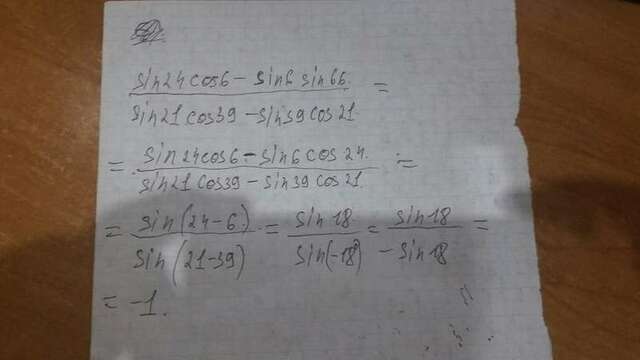 sin24cos6 - sin6 sin66 / sin21cos39 - sin39cos21 =
= sin24cos6 - sin6cos24 / sin21cos39 - sin39cos21 =
= sin(24-6) / sin(21-39) = sin18 / sin(-18°) = sin18 / -sin18 =
= -1.